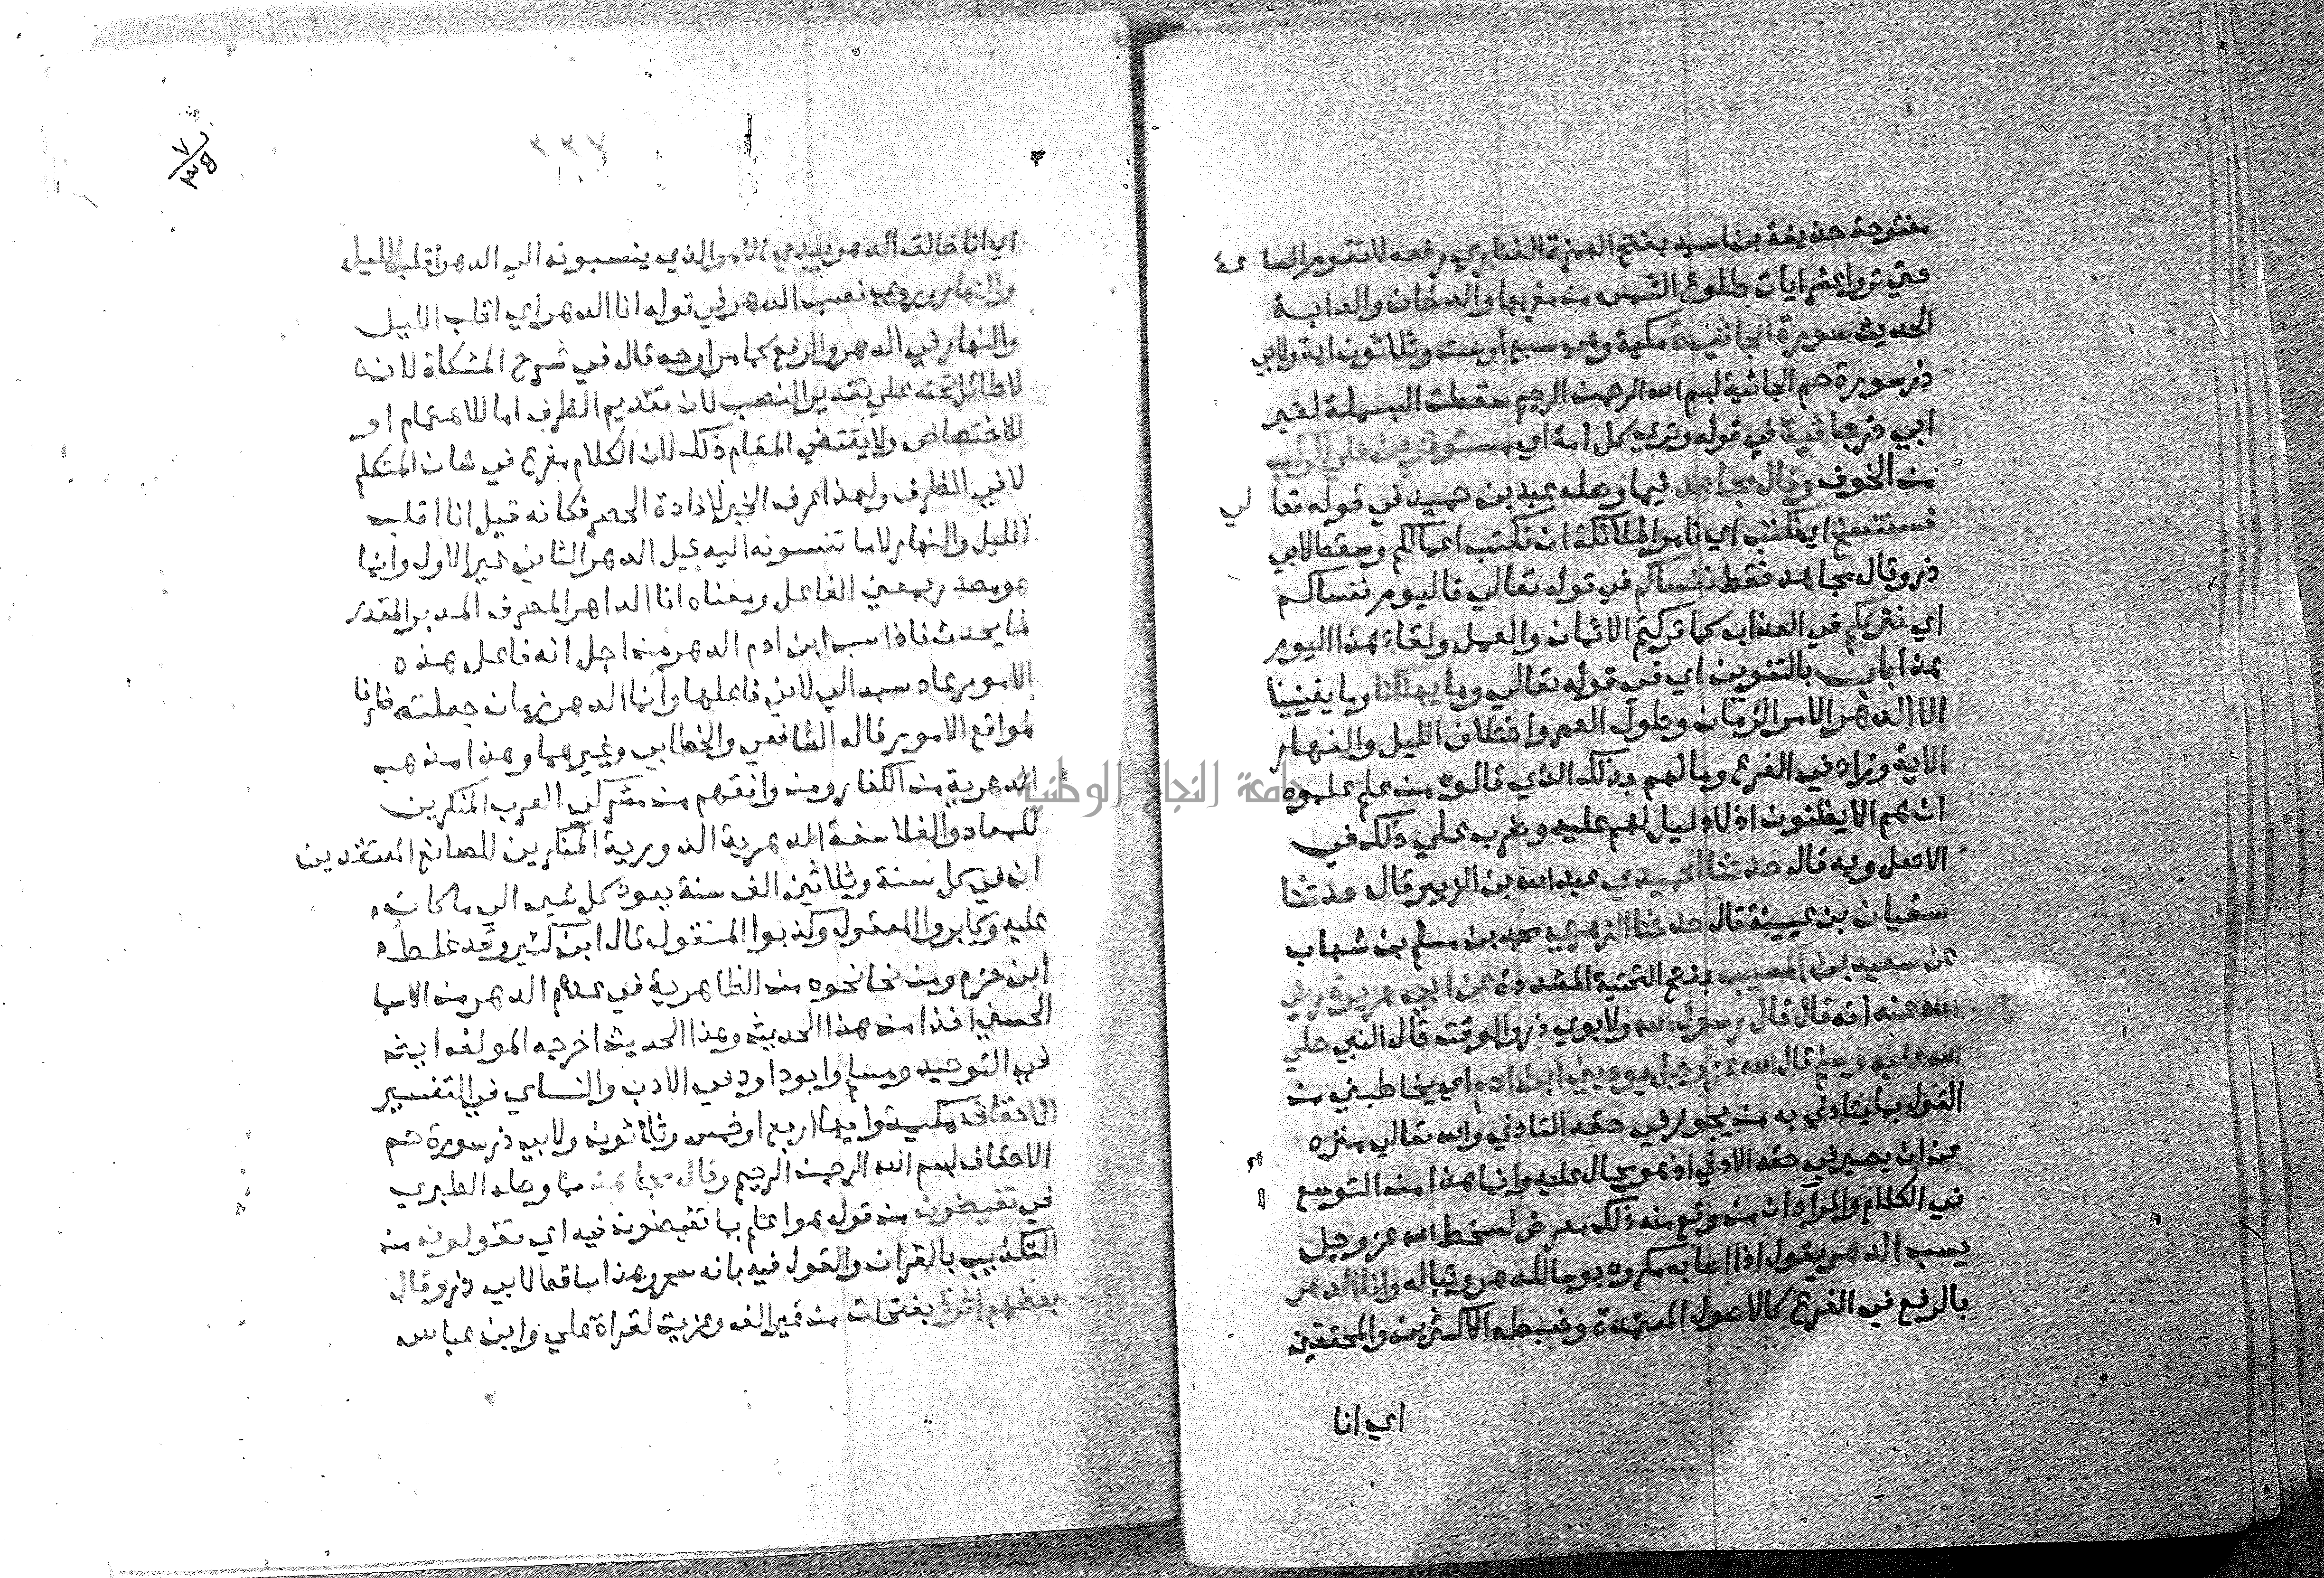 مفتوحة حذيفة بن اسيد بفتح الهمزة الغفاري رفعه لا تقوم الساعة
حتي تروا عشر ايات طلوع الشمس من مغربها والدخان والدابة
الحديث سورة الجاثية مكية وهي سبع او ست وثلاثون اية ولابي
ذر سورة حم الجاثية بسم الله الرحمن الرحيم سقطت البسملة لغير
ابي ذر جاثية في قوله وتري كل امة اي مستوفزين علي الركب
من الخوف وقال مجاهد فيما وصله عبد بن حميد في قوله تعالي
نستنسخ اي نكتب اي نامر الملائكة ان تكتب اعمالكم وسقط لابي
ذر وقال مجاهد فقط ننساكم في قوله تعالي فاليوم ننساكم
اي نترككم في العذاب كما تركتم الايمان والعمل ولقاء هذا اليوم
هذا باب بالتنوين اي في قوله تعالي وما يهلكنا وما يفنينا
الا الدهر الا مر الزمان وطول العمر واختلاف الليل والنهار
الاية وزاد في الفرع وما لهم بذلك الذي قالوه من علم علموه
ان هم الا يظنون اذ لا دليل لهم عليه وضرب علي ذلك في
الاصل وبه قال حدثنا الحميدي عبد الله بن الزبير قال حدثنا
سفيان بن عيينة قال حدثنا الزهري محمد بن مسلم بن شهاب
عن سعيد بن المسيب بفتح التحتية المشددة عن ابي هريرة رضي
الله عنه انه قال قال رسول الله ولابوي ذر والوقت قال النبي صلي
الله عليه وسلم قال الله عز وجل يوذيني ابن ادم اي يخاطبني من
القول بما يتاذي به من يجوز في حقه التاذي والله تعالي منزه
عن ان يصير في حقه الاذي اذ هو محال عليه وانما هذا من التوسع
في الكلام والمراد ان من وقع منه ذلك معرض لسخط الله عز وجل
يسب الدهر يقول اذا اصابه مكروه بوسا للدهر وتبا له وانا الدهر
بالرفع في الفرع كالاصول المعتمدة وضبطه الاكثرين والمحققين
اي انا
٣٣٧
اي انا خالق الدهر بيدي الامر الذي ينسبونه الي الدهر اقلب الليل
والنهار وروي نصب الدهر في قوله انا الدهر اي اقلب الليل
والنهار في الدهر والرفع كما مر اوجه قال في شرح المشكاة لانه
لا طائل تحته علي تقدير النصب لان تقديم الظرف اما للاهتمام او
للاختصاص ولا يقتضي المقام ذلك لان الكلام مفرع في شان المتكلم
لا في الظرف ولهذا عرف الخبر لافادة الحصر فكانه قيل انا اقلب
الليل والنهار لا ما تنسبونه اليه قيل الدهر الثاني غير الاول وانما
هو مصدر بمعني الفاعل ومعناه انا الداهر المصرف المدبر المقدر
لما يحدث فاذا سب ابن ادم الدهر من اجل انه فاعل هذه
الامور عاد سبه الي لاني فاعلها وانما الدهر زمان جعلته ظرفا
لمواقع الامور قاله الشافعي والخطابي وغيرهما وهذا مذهب
الدهرية من الكفار ومن وافقهم من مشركي العرب المنكرين
للمعاد والفلاسفة الدهرية الدورية المنكرين للصانع المعتقدين
ان في كل ستة وثلاثين الف سنة يعود كل شي الي ما كان
عليه وكابروا المعقول وكذبوا المنقول قال ابن كثير وقد غلط
ابن حزم ومن نحا نحوه من الظاهرية في عدهم الدهر من الاسما
الحسني اخذا من هذا الحديث وهذا الحديث اخرجه المولف ايضا
في التوحيد ومسلم وابو داود في الادب والنساي في التفسير
الاحقاف مكية وايها اربع او خمس وثلاثون ولابي ذر سورة حم
الاحقاف بسم الله الرحمن الرحيم وقال مجاهد مما وصله الطبري
في تفيضون من قوله هو اعلم بما تفيضون فيه اي تقولون من
التكذيب بالقران والقول فيه بانه سحر وهذا ساقط لابي ذر وقال
بعضهم اثرة بفتحات من غير الف وعزيت لقراة علي وابن عباس
جامعة النجاح الوطنية